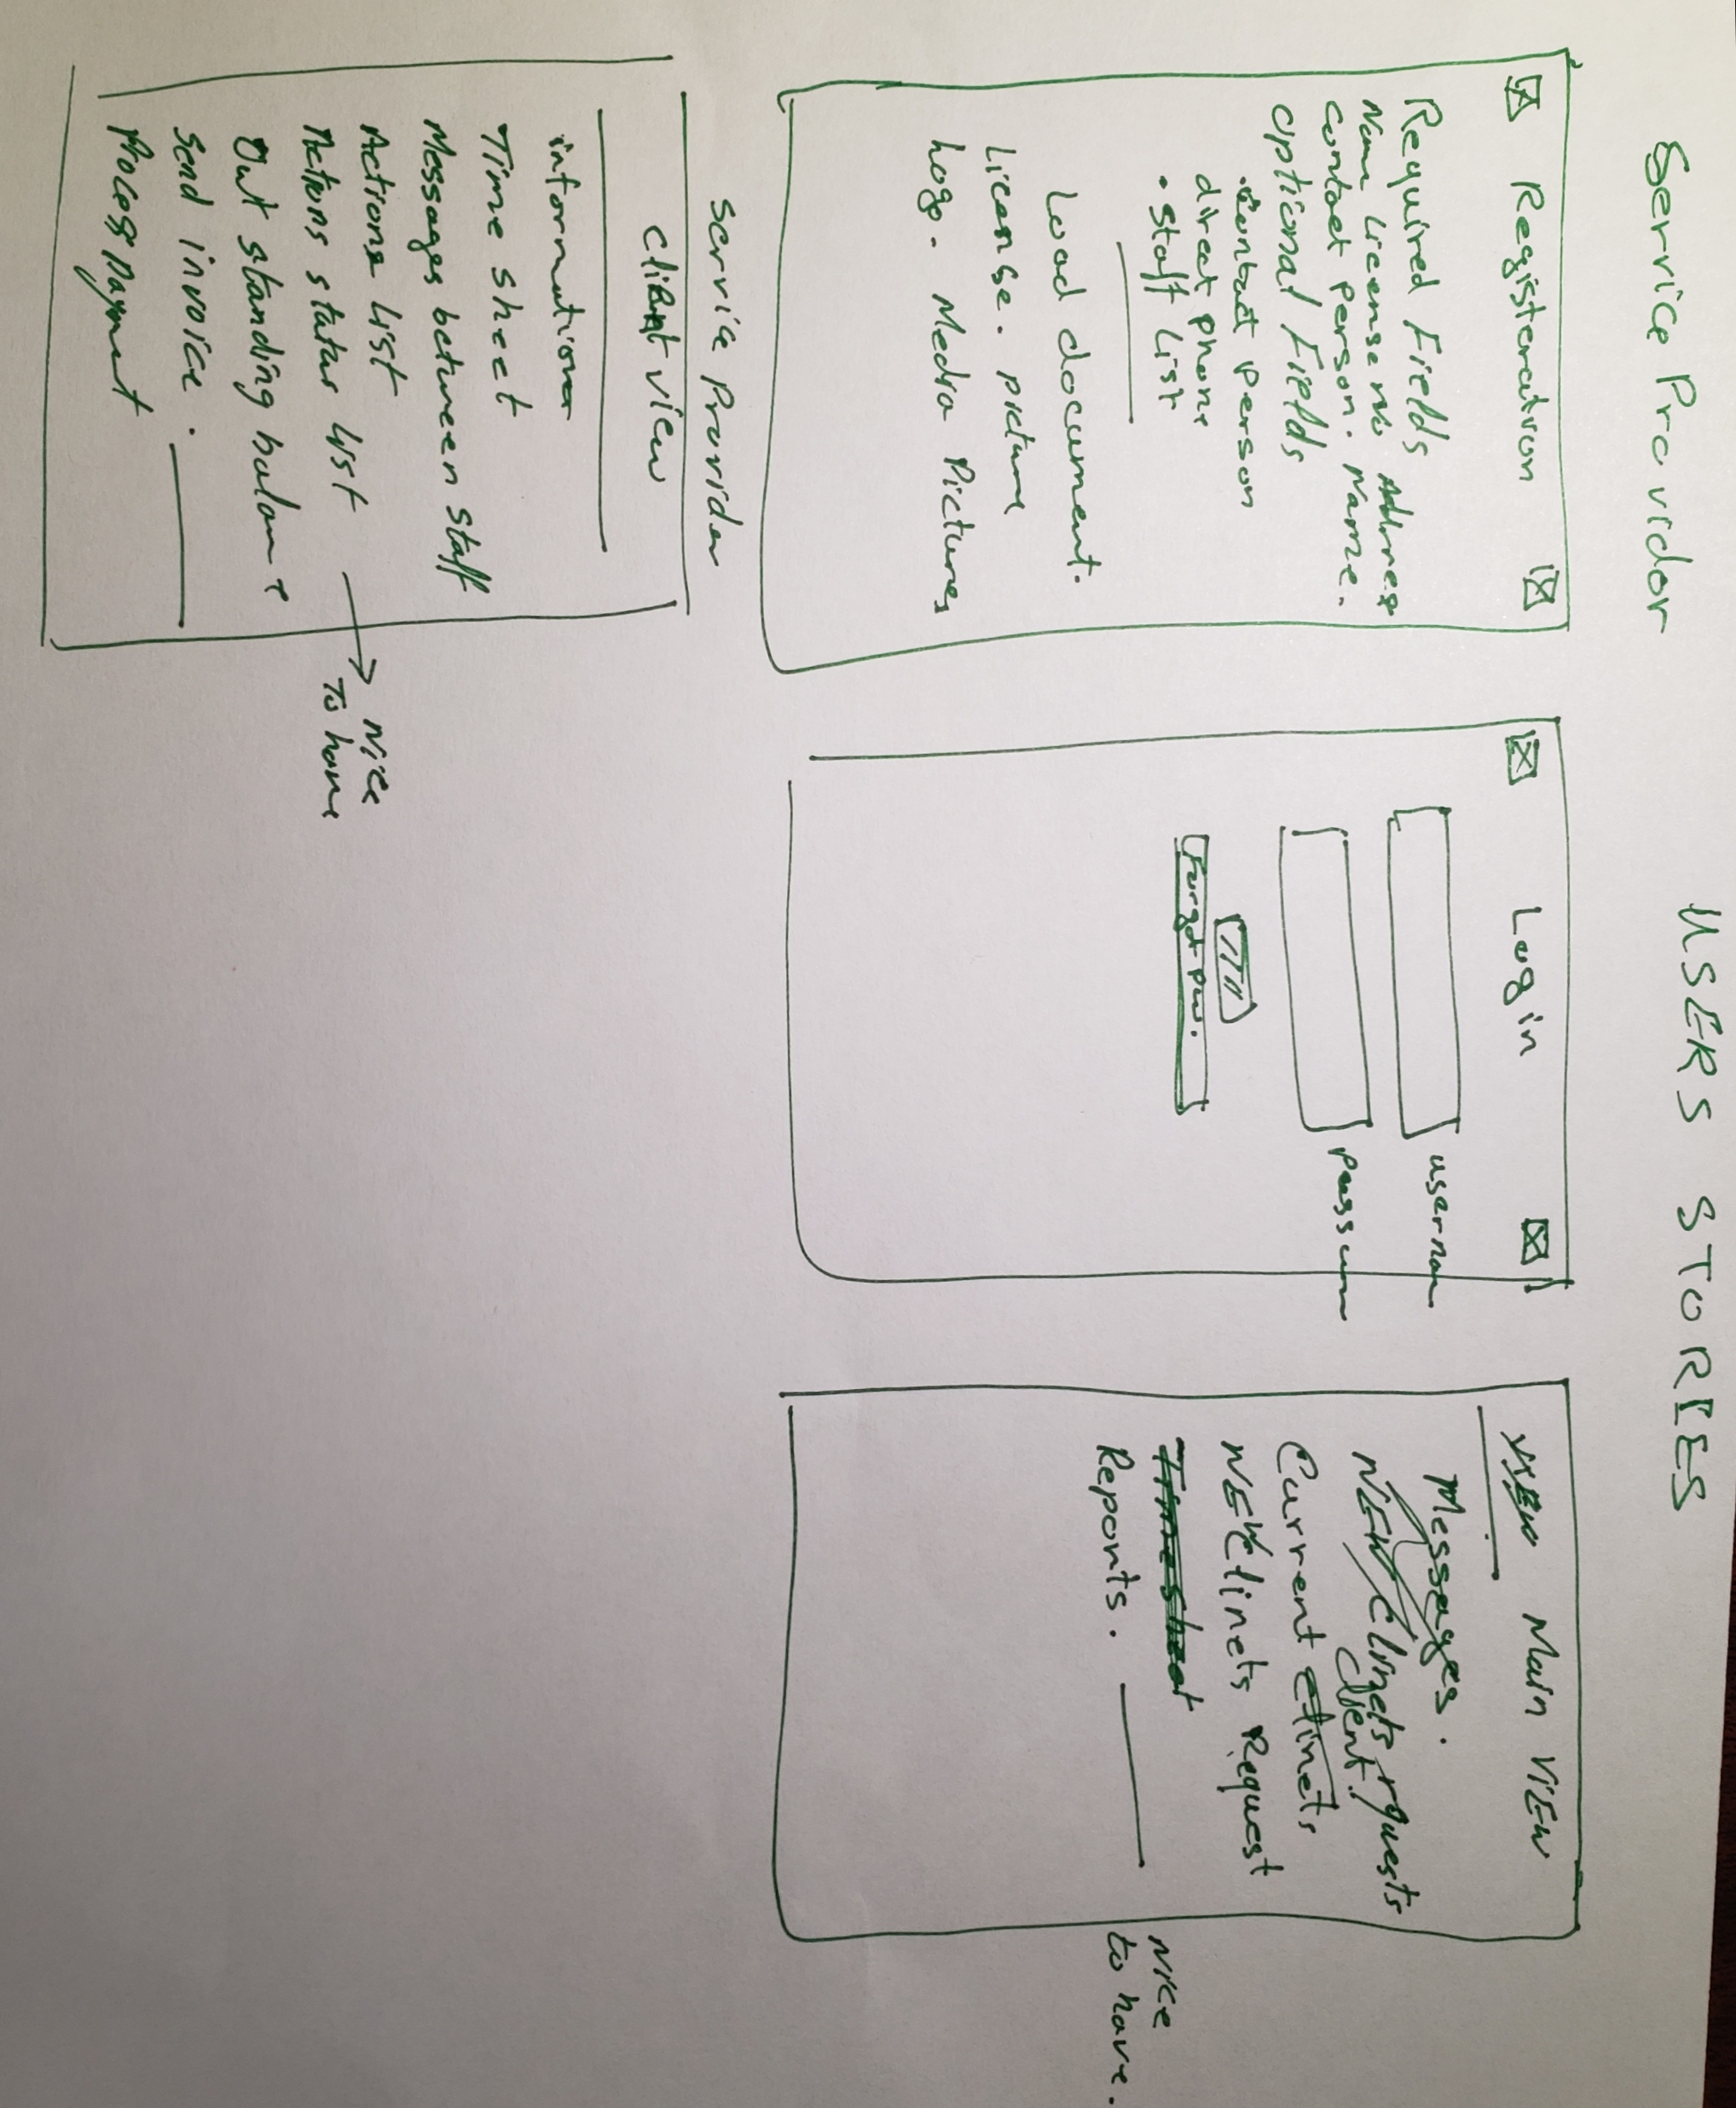 USERS STORIES
Service Providor
Registeration
Required Fields
Nam License No Address
Contact person. Name.
Optional Fields
• Contact person
direct phone
• Staff List
Load document.
License. picture
Logo. Media Pictures
Login
usernam
passwor
Forgot pw.
VIEW Main VIEW
Messages.
NEW Clinets rquests
Client.
Current Clinets
NEW Clinets Request
Timesheet
Reports.
NICE
to have.
Service Provider
Client view
information
Time sheet
Messages between staff
Actions List
Actions status list
NICE
To have
Out standing balance
Send invoice.
Process Payment